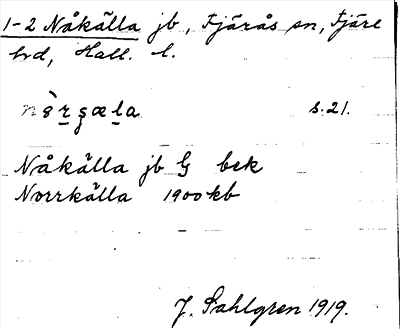 1-2 Nåkälla jb, Fjärås sn, Fjäre
hd, Hall. l.
s. 21.
Nåkälla jb G bek
Norrkälla 1900 kb
J. Sahlgren 1919.